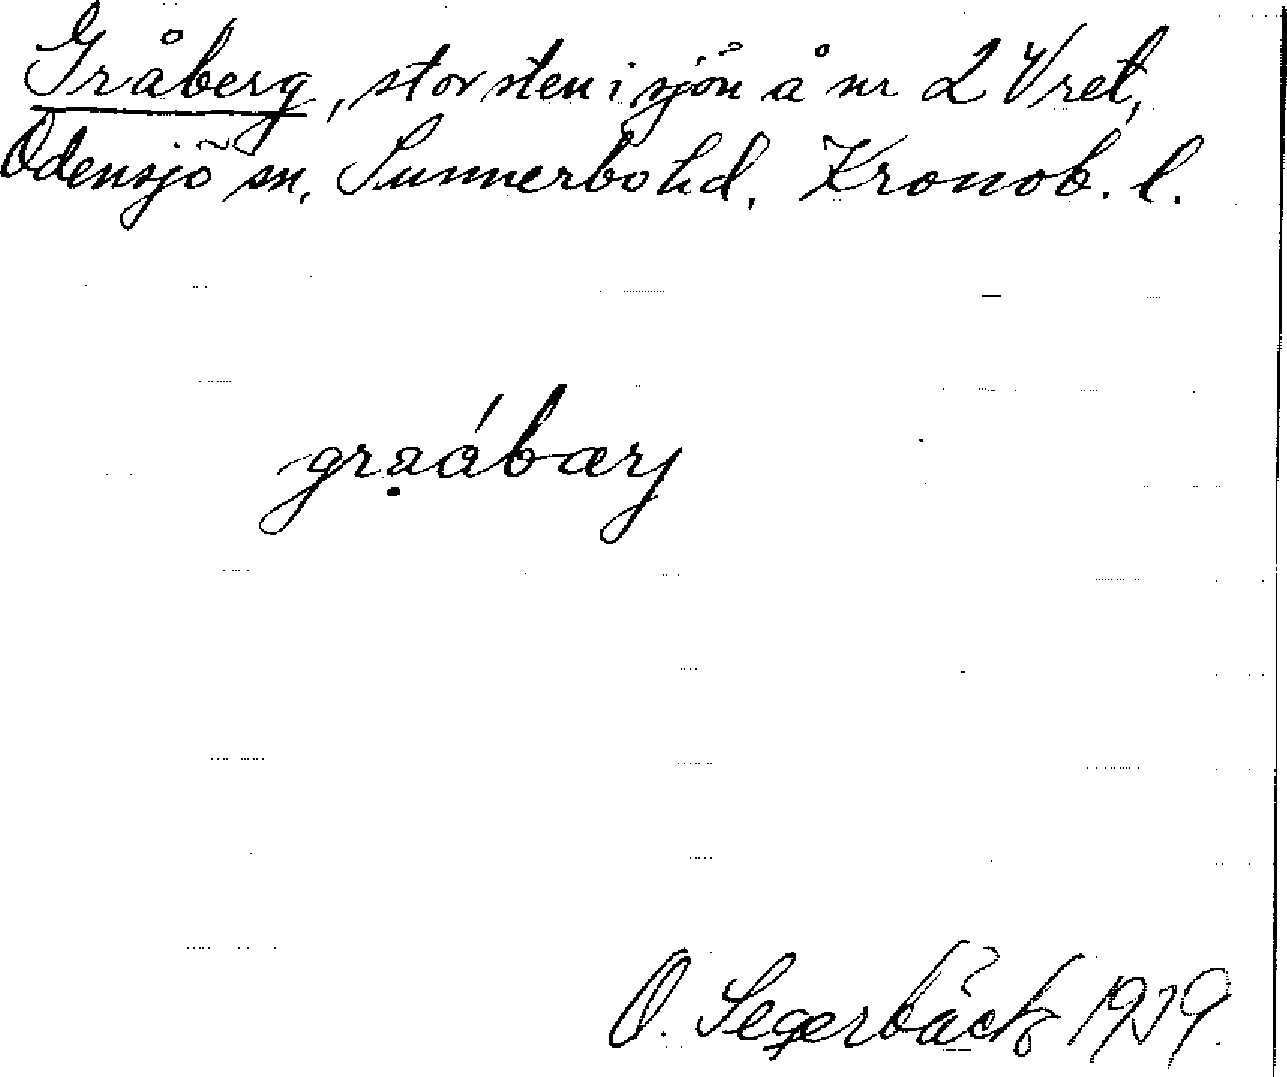 Gråberg, stor sten i sjön å nr 2 Vret,
Odensjö sn, Sunnerbo hd, Kronob. l.
graábærj
O. Segerbäck 1939.